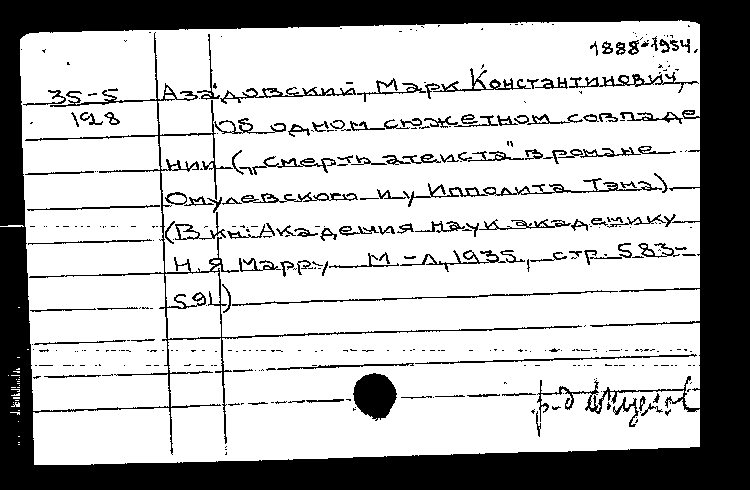 1888-1954.
35-5
128
Азадовский, Марк Константинович,
Об одном сюжетном совпаде
нии („смерть атеиста" в романе
Омулевского и у Ипполита Тэна)
(В кн: Академия наук академику
Н. Я Марру М.-Л, 1935, стр. 583-
591)
р-д